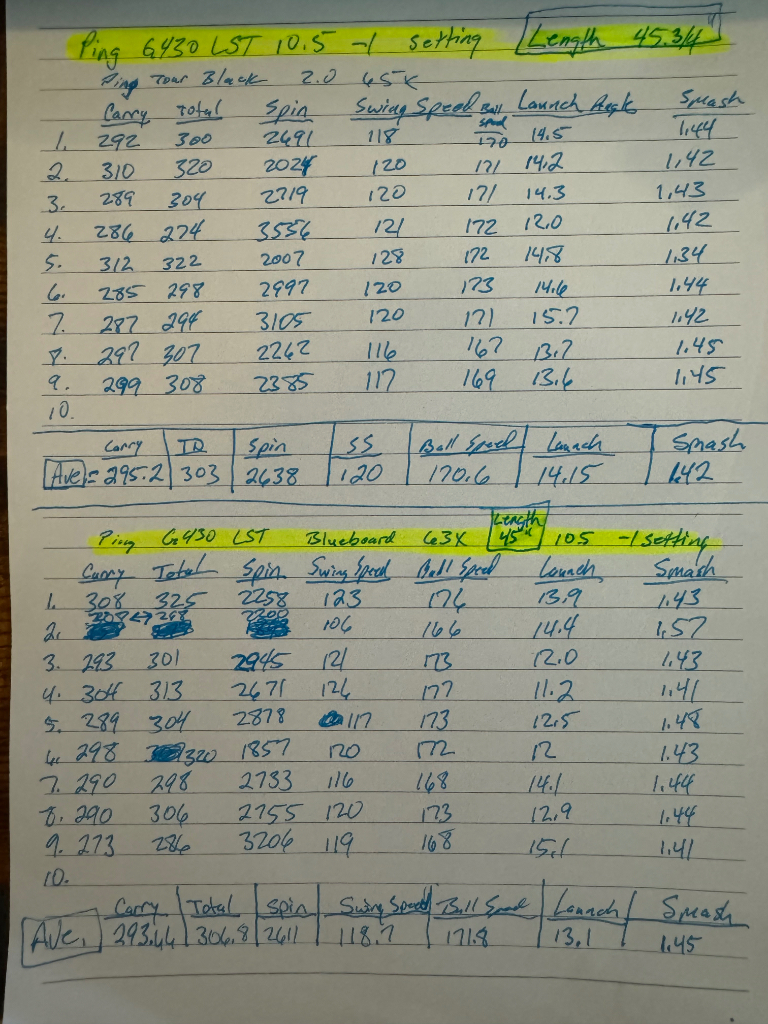 Ping G430 LST 10.5 -1 setting Length 45.3/4"
Ping Tour Black 2.0 65x
Carry Total Spin Swing Speed Ball Speed Launch Angle Smash
1. 292 300 2691 118 170 14.5 1.44
2. 310 320 2024 120 171 14.2 1.42
3. 289 304 2719 120 171 14.3 1.43
4. 286 274 3556 121 172 12.0 1.42
5. 312 322 2007 128 172 14.8 1.34
6. 285 298 2997 120 173 14.6 1.44
7. 287 294 3105 120 171 15.7 1.42
8. 297 307 2262 116 167 13.7 1.45
9. 299 308 2385 117 169 13.6 1.45
10.
Carry TD Spin SS Ball Speed Launch Smash
Ave = 295.2 303 2638 120 170.6 14.15 1.42
Ping G430 LST Blueboard 63X Length 45" 10.5 -1 setting
Carry Total Spin Swing Speed Ball Speed Launch Smash
1. 308 325 2258 123 176 13.9 1.43
2. ↔ 2200 106 166 14.4 1.57
3. 293 301 2945 121 173 12.0 1.43
4. 304 313 2671 126 177 11.2 1.41
5. 289 304 2878 117 173 12.5 1.48
6. 298 320 1857 120 172 12 1.43
7. 290 298 2733 116 168 14.1 1.44
8. 290 306 2755 120 173 12.9 1.44
9. 273 286 3206 119 168 15.1 1.41
10.
Carry Total Spin Swing Speed Ball Speed Launch Smash
Ave. 293.66 306.8 2611 118.7 171.8 13.1 1.45